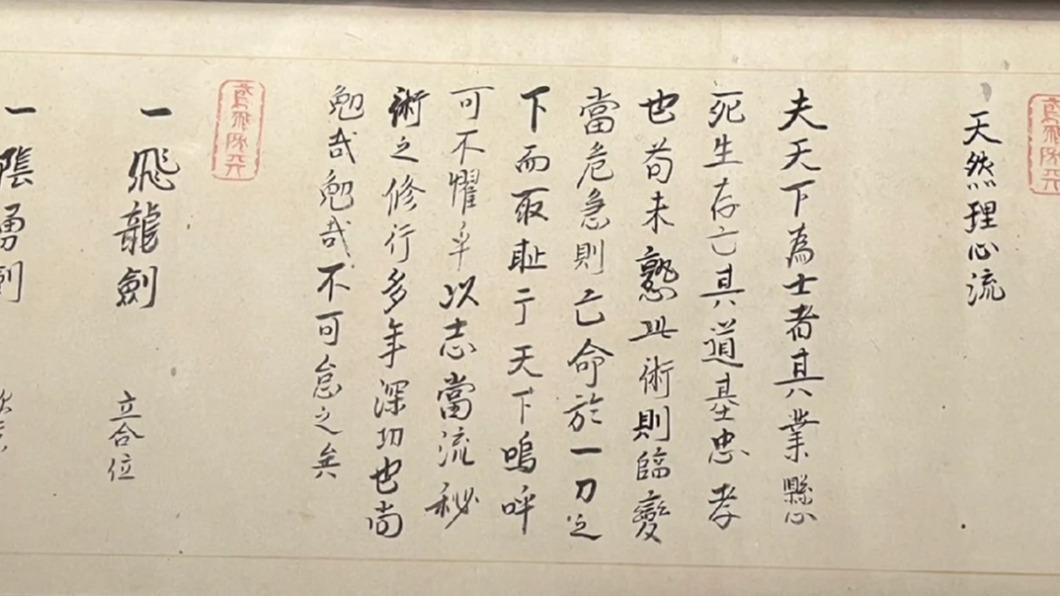 天然理心流
夫天下為士者其業懸
死生存亡其道基忠孝
也苟未懃此術則臨變
當危急則亡命於一刀之
下而取耻于天下嗚呼
可不懼乎以志當流秘
術之修行多年深切也尚
勉哉勉哉不可怠之矣
一飛龍劍
立合位
一陰勇劍